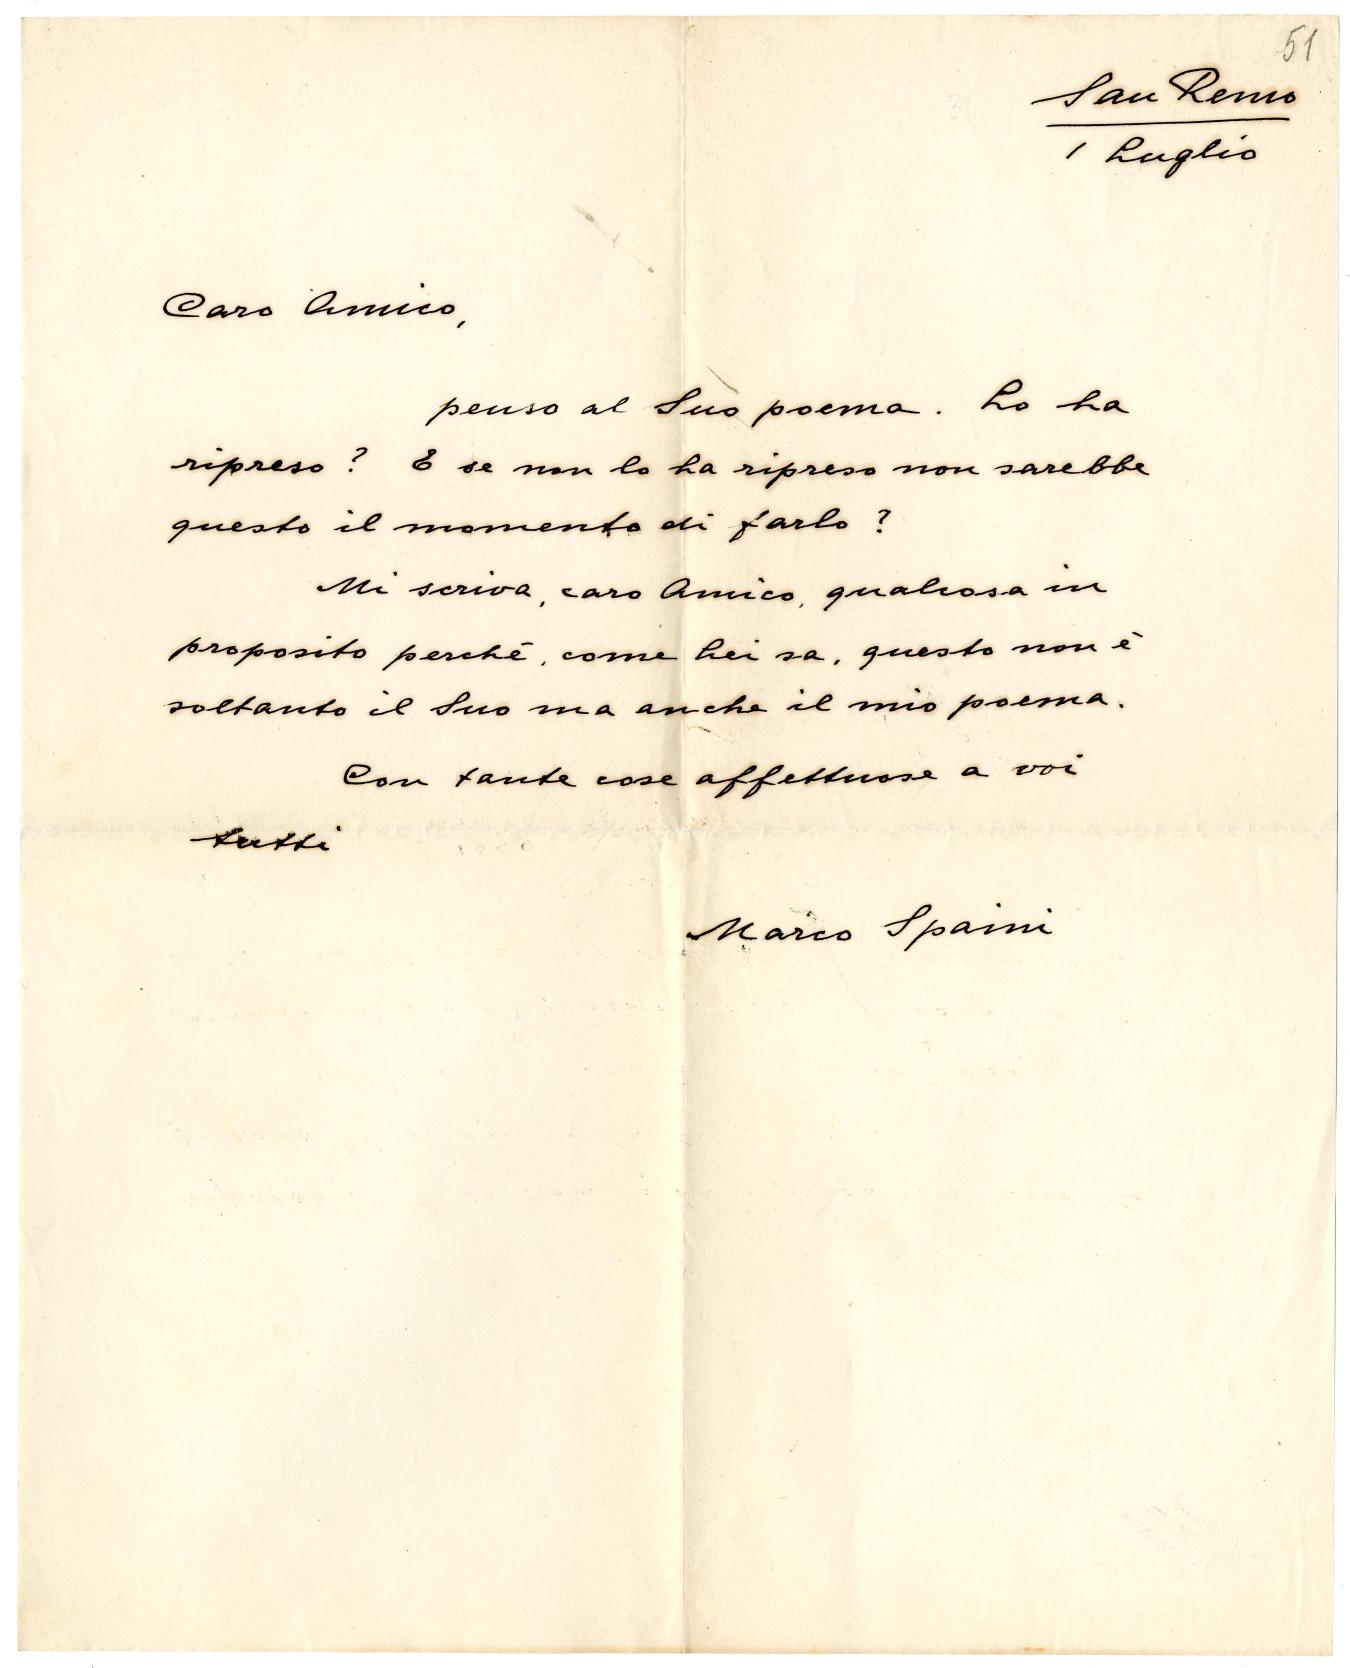 51
San Remo
1 Luglio
Caro Amico,
penso al Suo poema. Lo ha
ripreso? E se non lo ha ripreso non sarebbe
questo il momento di farlo?
Mi scriva, caro Amico, qualcosa in
proposito perché, come Lei sa, questo non è
soltanto il Suo ma anche il mio poema.
Con tante cose affettuose a voi
tutti
Marco Spaini